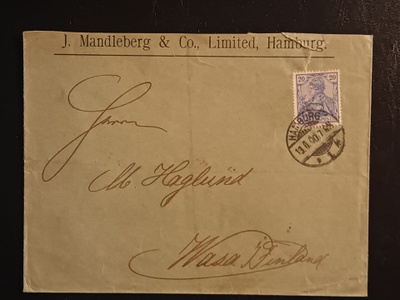 J. Mandleberg & Co., Limited, Hamburg.
20 20
HAMBURG
Herrn
M Haglund
Wasa Finland